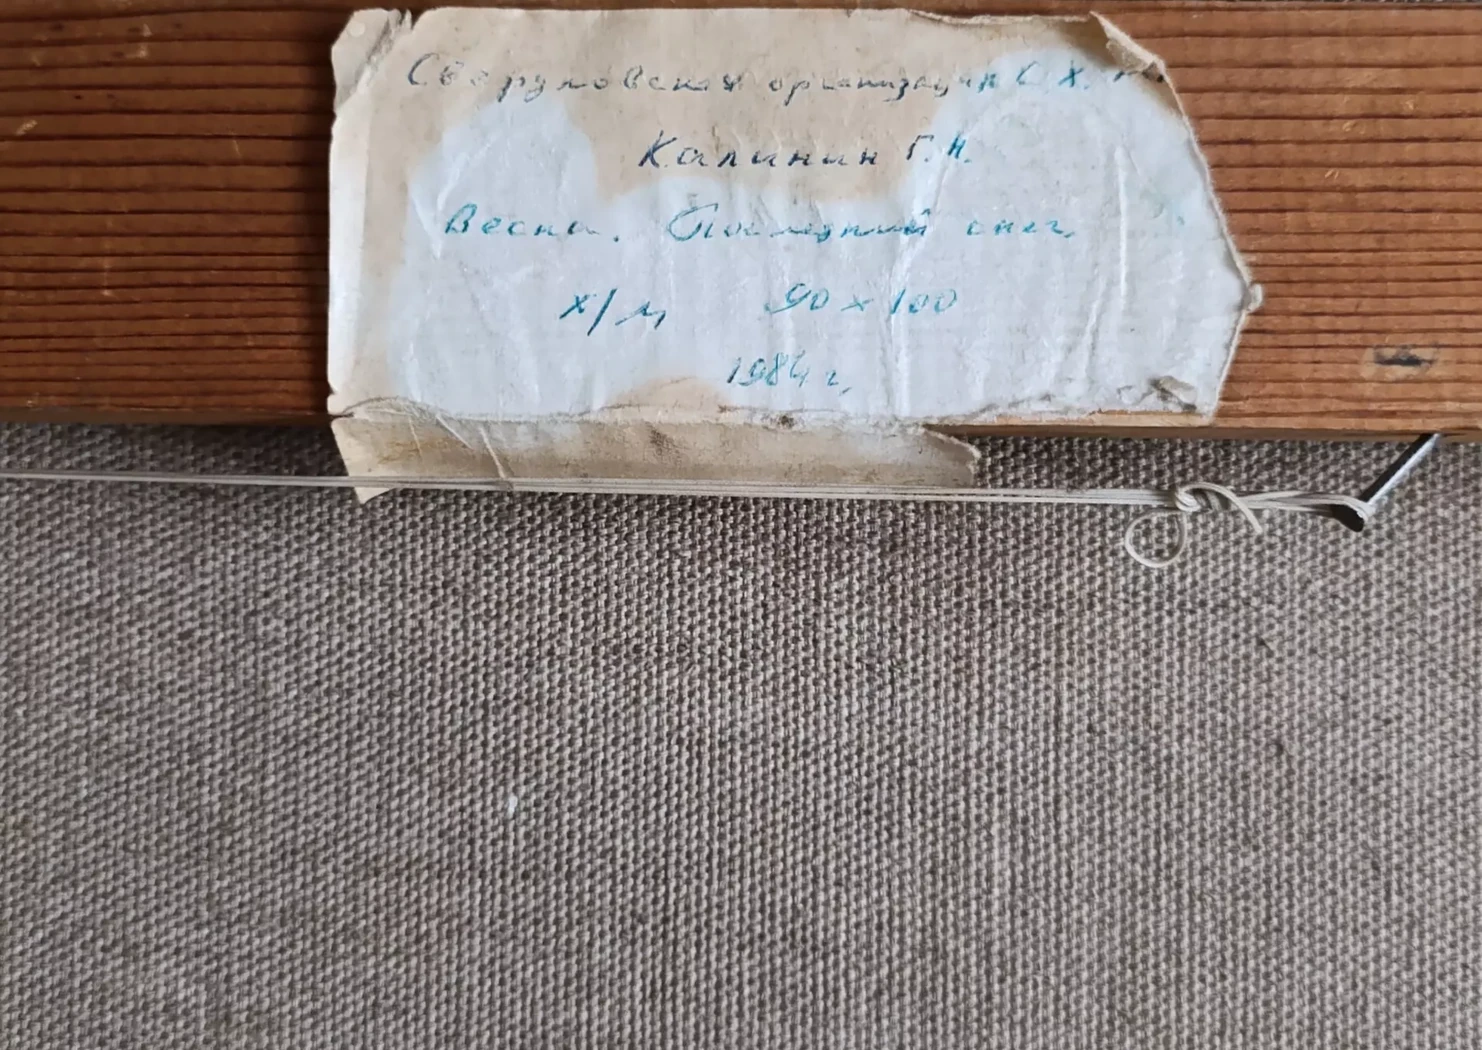 Свердловская организация С.Х.
Калинин Г.Н.
Весна. Последний снег.
х/м 90 х 100
1984 г.